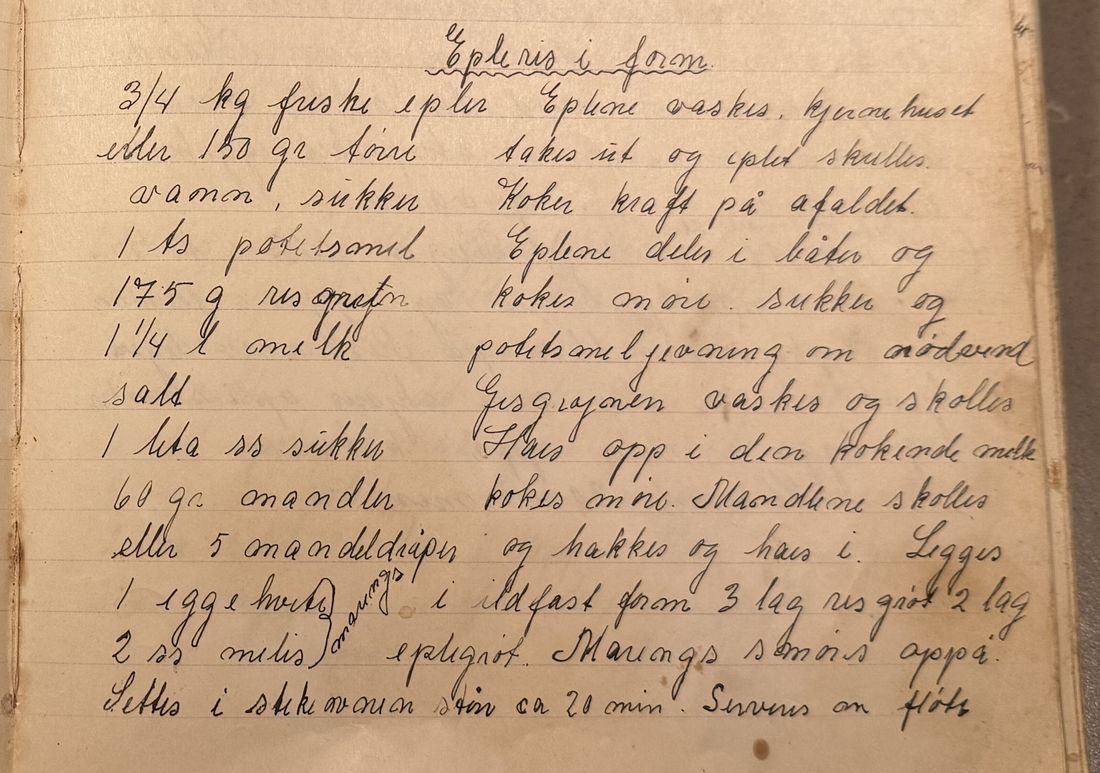 Epleris i form.
3/4 kg friske epler Eplene vaskes. kjernehuset
eller 150 gr tørre takes ut og eplet skrelles.
vann, sukker Koker kraft på afaldet.
1 ts potetsmel Eplene deles i båter og
175 g risgryn kokes møre. sukker og
1 1/4 l melk potetsmeljevning om nødvend
salt Risgrynen vaskes og skolles
1 sukker Haes opp i den kokende melk
60 gr mandler kokes møre. Mandlene skolles
eller 5 mandeldråper og hakkes og haes i. Legges
1 eggehvite } marengs i ildfast form 3 lag risgrøt 2 lag
2 ss melis eplegrøt. Marengs smøres oppå.
Settes i stekeovnen ca 20 min. Serveres m fløte